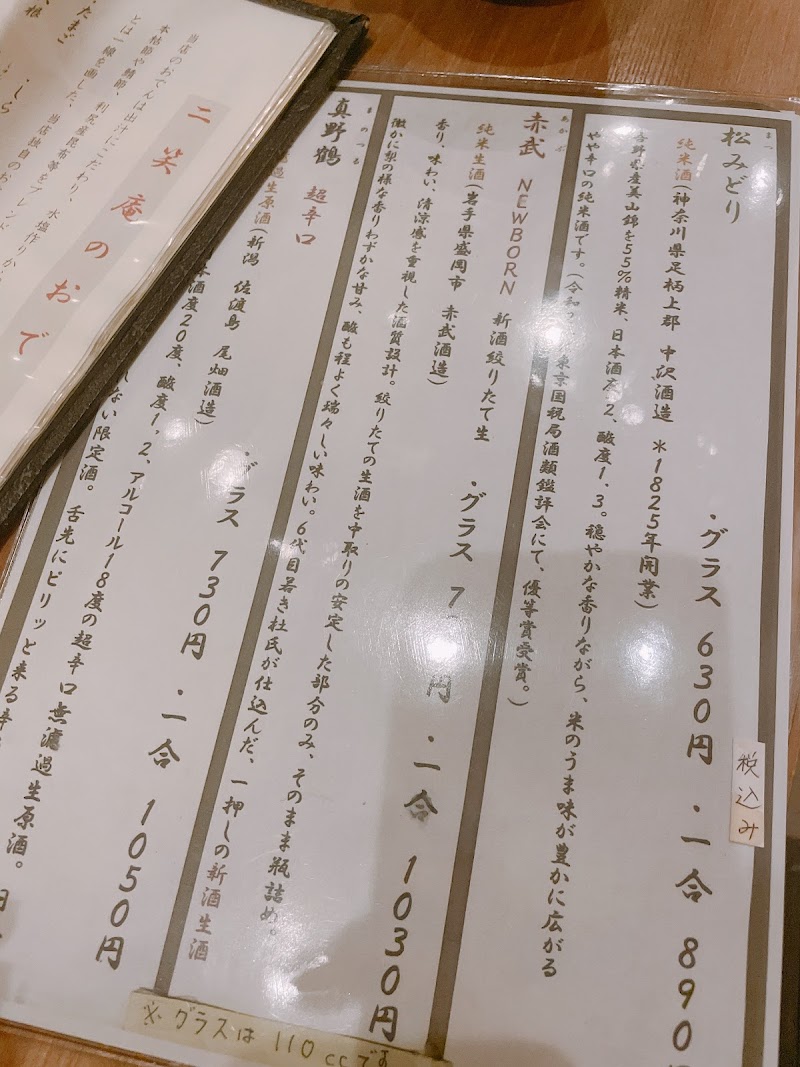 まつ
松みどり
純米酒(神奈川県足柄上郡 中沢酒造 *1825年開業)
・グラス 630円 ・一合 890
県産美山錦を55%精米、日本酒度 2、酸度1.3。穏やかな香りながら、米のうま味が豊かに広がる
やや辛口の純米酒です。(令和 東京国税局酒類鑑評会にて、優等賞受賞。)
税込み
あかぶ
赤武 NEWBORN 新酒絞りたて生
純米生酒(岩手県盛岡市 赤武酒造)
・グラス 7 円 ・一合 1030円
香り、味わい、清涼感を重視した酒質設計。絞りたての生酒を中取りの安定した部分のみ、そのまま瓶詰め。
微かに梨の様な香りわずかな甘み、酸も程よく瑞々しい味わい。6代目若き杜氏が仕込んだ、一押しの新酒生酒
まのつる
真野鶴 超辛口
過生原酒(新潟 佐渡島 尾畑酒造)
・グラス 730円 ・一合 1050円
本酒度20度、酸度1,2、アルコール18度の超辛口無濾過生原酒。
しない限定酒。舌先にピリッと来る辛
※グラスは110ccです
二笑庵のおで
当店のおでんは出汁にこだわり、水塩作りか
本枯節や鯖節、利尻産昆布等をブレンド
とは一線を画した、当店独自のお
・たまご
・しら